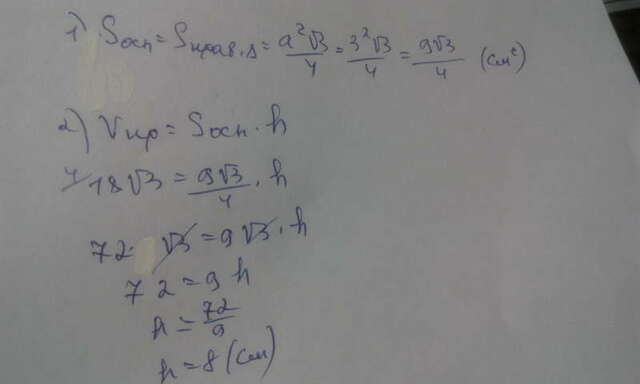 1) Sосн = Sправ.Δ = a²√3/4 = 3²√3/4 = 9√3/4 (см²)
2) Vпр = Sосн · h
4/ 18√3 = 9√3/4 · h
72 · √3 = 9√3 · h
72 = 9 h
h = 72/9
h = 8 (см)